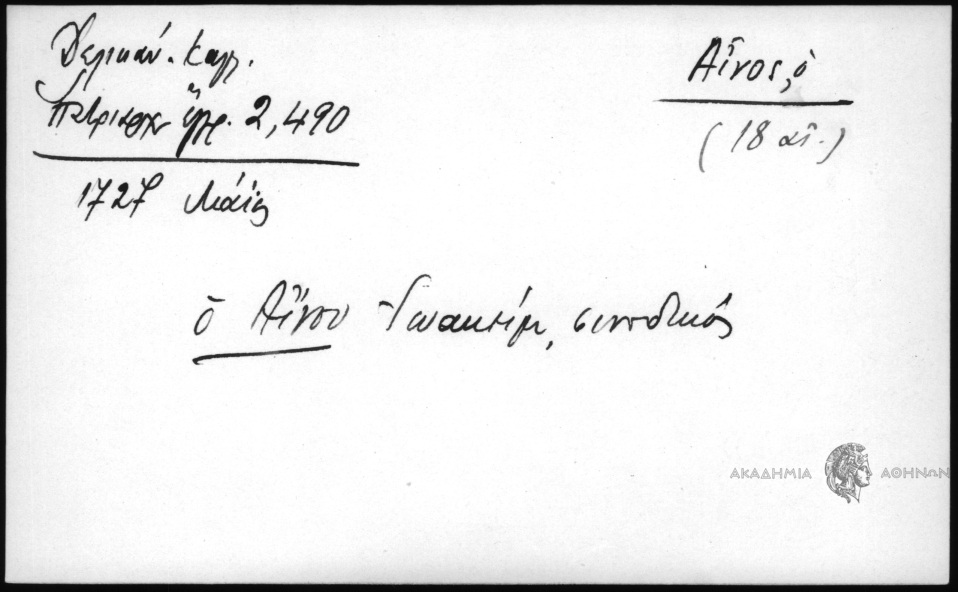 Δελικάν. Καλλ.
Πατριαρχ. ἔγγρ. 2,490
1727 Μάϊος
Αἶνος, ὁ
(18 αἰ.)
ὁ Αἴνου Ἰωακείμ, συνοδικός
ΑΚΑΔΗΜΙΑ ΑΘΗΝΩΝ